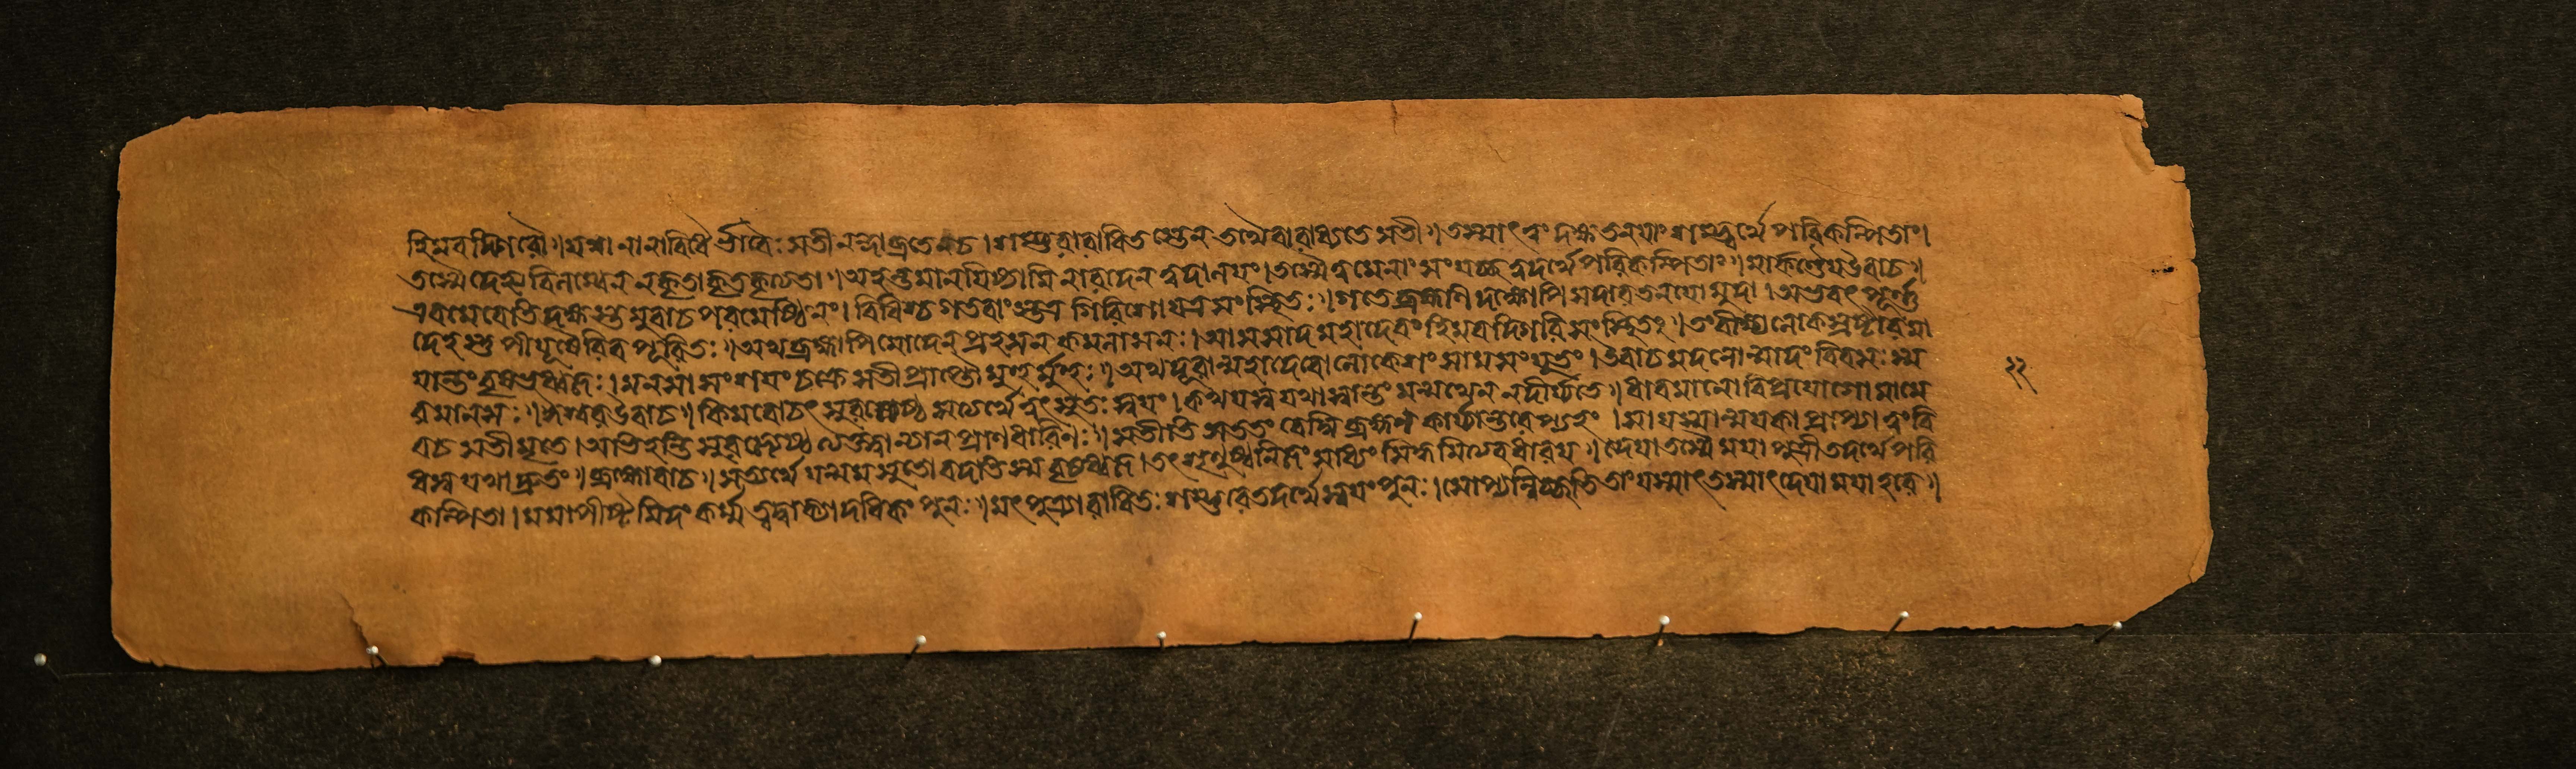 হিমবদ্গিরৌ॥যথা নানাবিধৈর্ভাবৈঃ সতী নন্দাব্রতেনচ।শম্ভুরারাধিতস্তেন তথৈবারাধ্যতে সতী॥তস্মাৎত্বং দক্ষ তনয়াং শম্ভ্বর্থে পরিকল্পিতাং।
তস্মৈ দেহ্যবিলম্বেন কৃতা কৃতকৃত্যতা॥অহন্তমানয়িষ্যামি নারদেন ত্বদালয়ং।তস্মৈ ত্বমেনাং সংযচ্ছ ত্বদর্থে পরিকল্পিতাং॥মার্কণ্ডেয়উবাচ॥
এবমেবেতি দক্ষস্তমুবাচ পরমেষ্ঠিনং।বিধিশ্চ গতবাংস্তত্র গিরিশো যত্র সংস্থিতঃ॥গতে ব্রহ্মণি দক্ষোপি সদারতনয়ো মুদা।অভবৎ পূর্ণ্ণ
দেহস্তু পীযূষৈরিব পূরিতঃ॥অথ ব্রহ্মাপি মোদেন প্রহসন কমলাসনঃ।আসসাদ মহাদেবং হিমবদ্গিরিসংস্থিতং॥তংবীক্ষ্য লোকস্রষ্টারমা
য়ান্তং বৃষভধ্বজঃ।মনসা সংশয়ং চক্রে সতীপ্রাপ্তৌ মুহুর্মুহুঃ॥অথ দূরান্মহাদেবো লোকেশং সামসংযুতং।উবাচ মদনোন্মাদং বিবসঃ স্ম
রমানসঃ॥ঈশ্বরউবাচ॥কিমবোচৎ সুরজ্যেষ্ঠ সত্যর্থে ত্বৎসুতঃ স্বয়ং।কথয়স্ব যথা স্বান্তং মন্মথেন নদীর্য্যতে॥ধাবমানো বিপ্রয়োগো মামে
বচ সতীমৃতে।অভিহন্তি সুরজ্যেষ্ঠ ত্যক্ত্বান্যান প্রাণধারিণঃ॥সতীতি সততং বেদ্মি ব্রহ্মন কার্য্যান্তরেপ্যহং।সা যস্মান্ময়কা প্রাপ্যা ত্বং বি
ধৎস্ব যথা দ্রুতং॥ব্রহ্মোবাচ॥সত্যর্থে যন্মম সুতো বদতি স্ম বৃষধ্বজ।তৎ শৃণুষ্ব নিজং সাধ্যং সিদ্ধমিত্যবধারয়॥দেয়া তস্মৈ ময়া পুত্রী তদর্থে পরি
কল্পিতা।মমাপীষ্টমিদং কর্ম্ম ত্বদ্বাক্যাদধিকং পুনঃ॥মৎপুত্র্যারাধিতঃ শম্ভুরেতদর্থে স্বয়ং পুনঃ।সোপ্যন্বিচ্ছতি তাং যস্মাৎ তস্মাৎ দেয়া ময়া হরে॥
২২